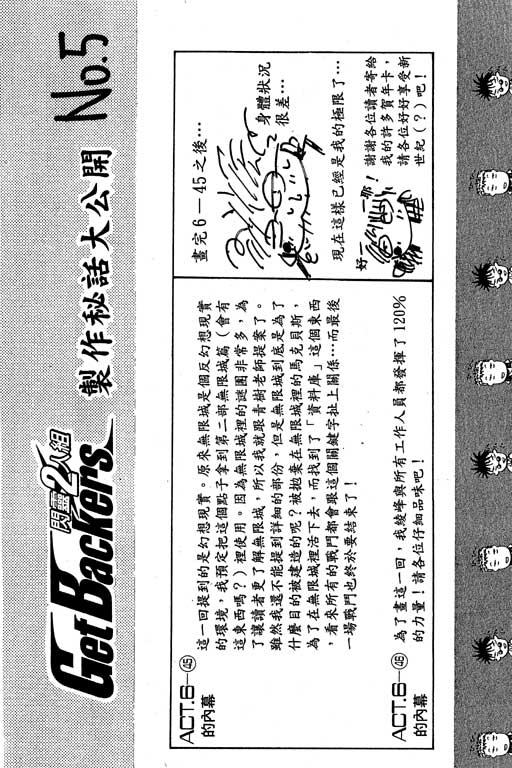 閃靈2人組
GetBackers
製作秘話大公開 No.5
ACT.6—㊺
的內幕
這一回提到的是幻想現實。原來無限城是個反幻想現實
的環境，我預定把這個點子拿到第二部無限城篇（會有
這東西嗎？）裡使用。因為無限城裡的謎團非常多，為
了讓讀者更了解無限城，所以我就跟青樹老師提案了。
雖然我還不能提到詳細的部份，但是無限城到底是為了
什麼目的被建造的呢？被拋棄在無限城裡的馬克貝斯，
為了在無限城裡活下去，而找到了「資料庫」這個東西
，看來所有的戰鬥都會跟這個關鍵字扯上關係…而最後
一場戰鬥也終於要結束了！
畫完6—45之後…
身體狀況
很差…
現在這樣已經是我的極限了…
ACT.6—㊻
的內幕
為了畫這一回，我綾峰與所有工作人員都發揮了120%
的力量！請各位仔細品味吧！
好一
那！
謝謝各位讀者寄給
我的許多賀年卡，
請各位好好享受新
世紀（？）吧！